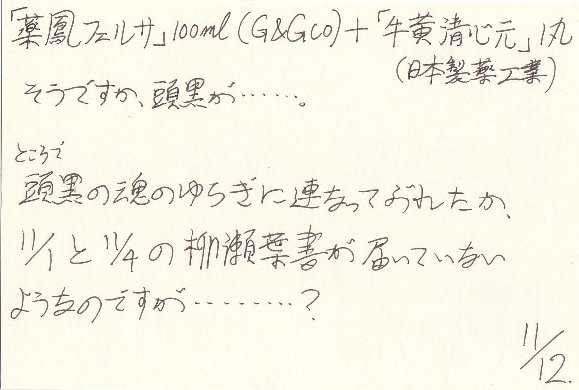 「薬鳳フェルサ」100ml (G&Gco)+「牛黄清心元」1丸
(日本製薬工業)
そうですか、頭黒が……。
ところで
頭黒の魂のゆらぎに連なってぶれたか、
11/1と11/4の柳瀬葉書が届いていない
ようなのですが………?
11/12.